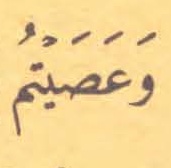 وَعَصَيْتُم